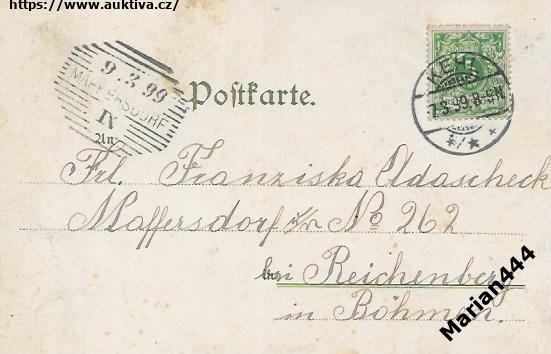 https://www.auktiva.cz/
9.3.99
MAFFERSDORF
IX
KEHL
7.3.99.8-9N
Postkarte.
Frl. Franziska Adascheck
Maffersdorf No 262
bei Reichenberg
in Böhmen.
Marian444